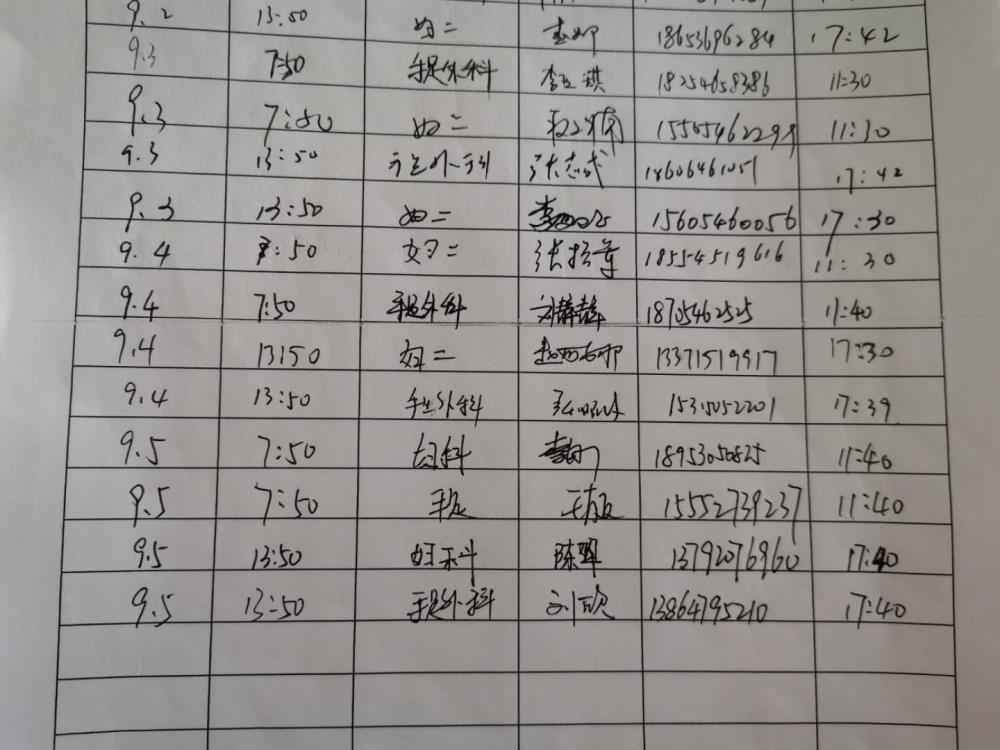 9.2 13:50 妇二 18653696284 17:42
9.3 7:50 手足外科 李玉琪 18254658386 11:30
9.3 7:50 妇二 11:30
9.3 13:50 手足外科 张志成 18606461051 17:42
9.3 13:50 妇二 15605460056 17:30
9.4 7:50 妇二 18554519616 11:30
9.4 7:50 手足外科 刘静静 18705462525 11:40
9.4 13:50 妇二 13371519917 17:30
9.4 13:50 手足外科 17:39
9.5 7:50 妇科 18953050825 11:40
9.5 7:50 手足 15552739237 11:40
9.5 13:50 妇科 陈翠 13792076960 17:40
9.5 13:50 手足外科 刘欣 13864795210 17:40